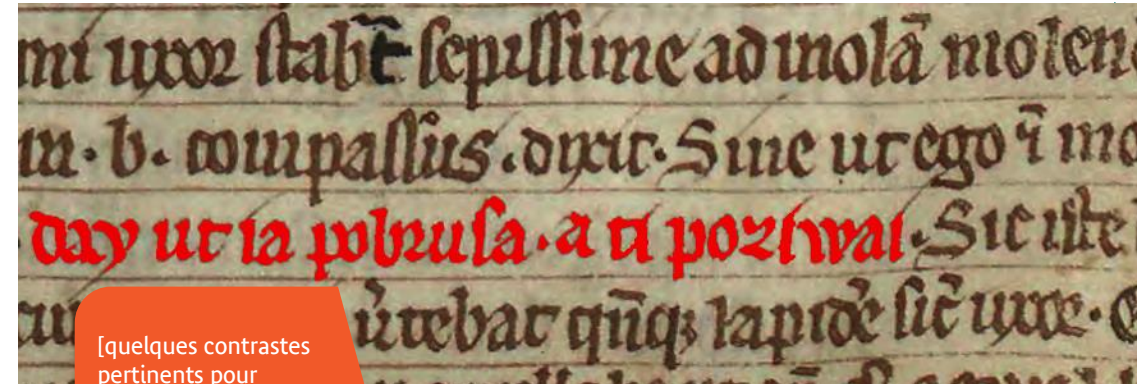 uxor stabt̄ sepissime ad molā molen
b. compassus. dixit. Sine ut ego ī mo
day ut ia pobrusa. a ti poziwai. Sic iste
v̄tebat qn̄qꝫ lapidē sic̄ uxor.
[quelques contrastes
pertinents pour